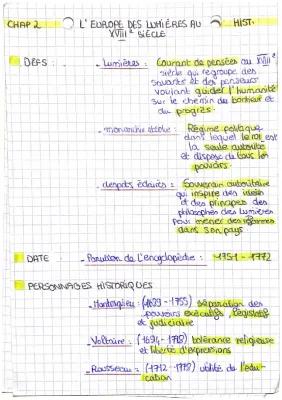 CHAP 2 L'EUROPE DES LUMIÈRES AU HIST.
XVIIIe SIÈCLE
DEFS : - Lumières : Courant de pensées au XVIIIe
siècle qui regroupe des
savants et des penseurs
voulant guider l'humanité
sur le chemin du bonheur et
du progrès.
- monarchie absolue : Régime politique
dans lequel le roi est
la seule autorité
et dispose de tous les
pouvoirs.
- despote éclairés : Souverain autoritaire
qui inspire des idées
et des principes des
philosophes des Lumières
pour mener des réformes
dans son pays
DATE - Parution de l'encyclopédie : 1751 - 1772
PERSONNAGES HISTORIQUES
- Montesquieu : (1689 - 1755) séparation des
pouvoirs exécutifs, législatifs
et judiciaire
- Voltaire : (1694 - 1778) tolérance religieuse
et liberté d'expressions
- Rousseau : (1712 - 1778) utilité de l'édu-
cation